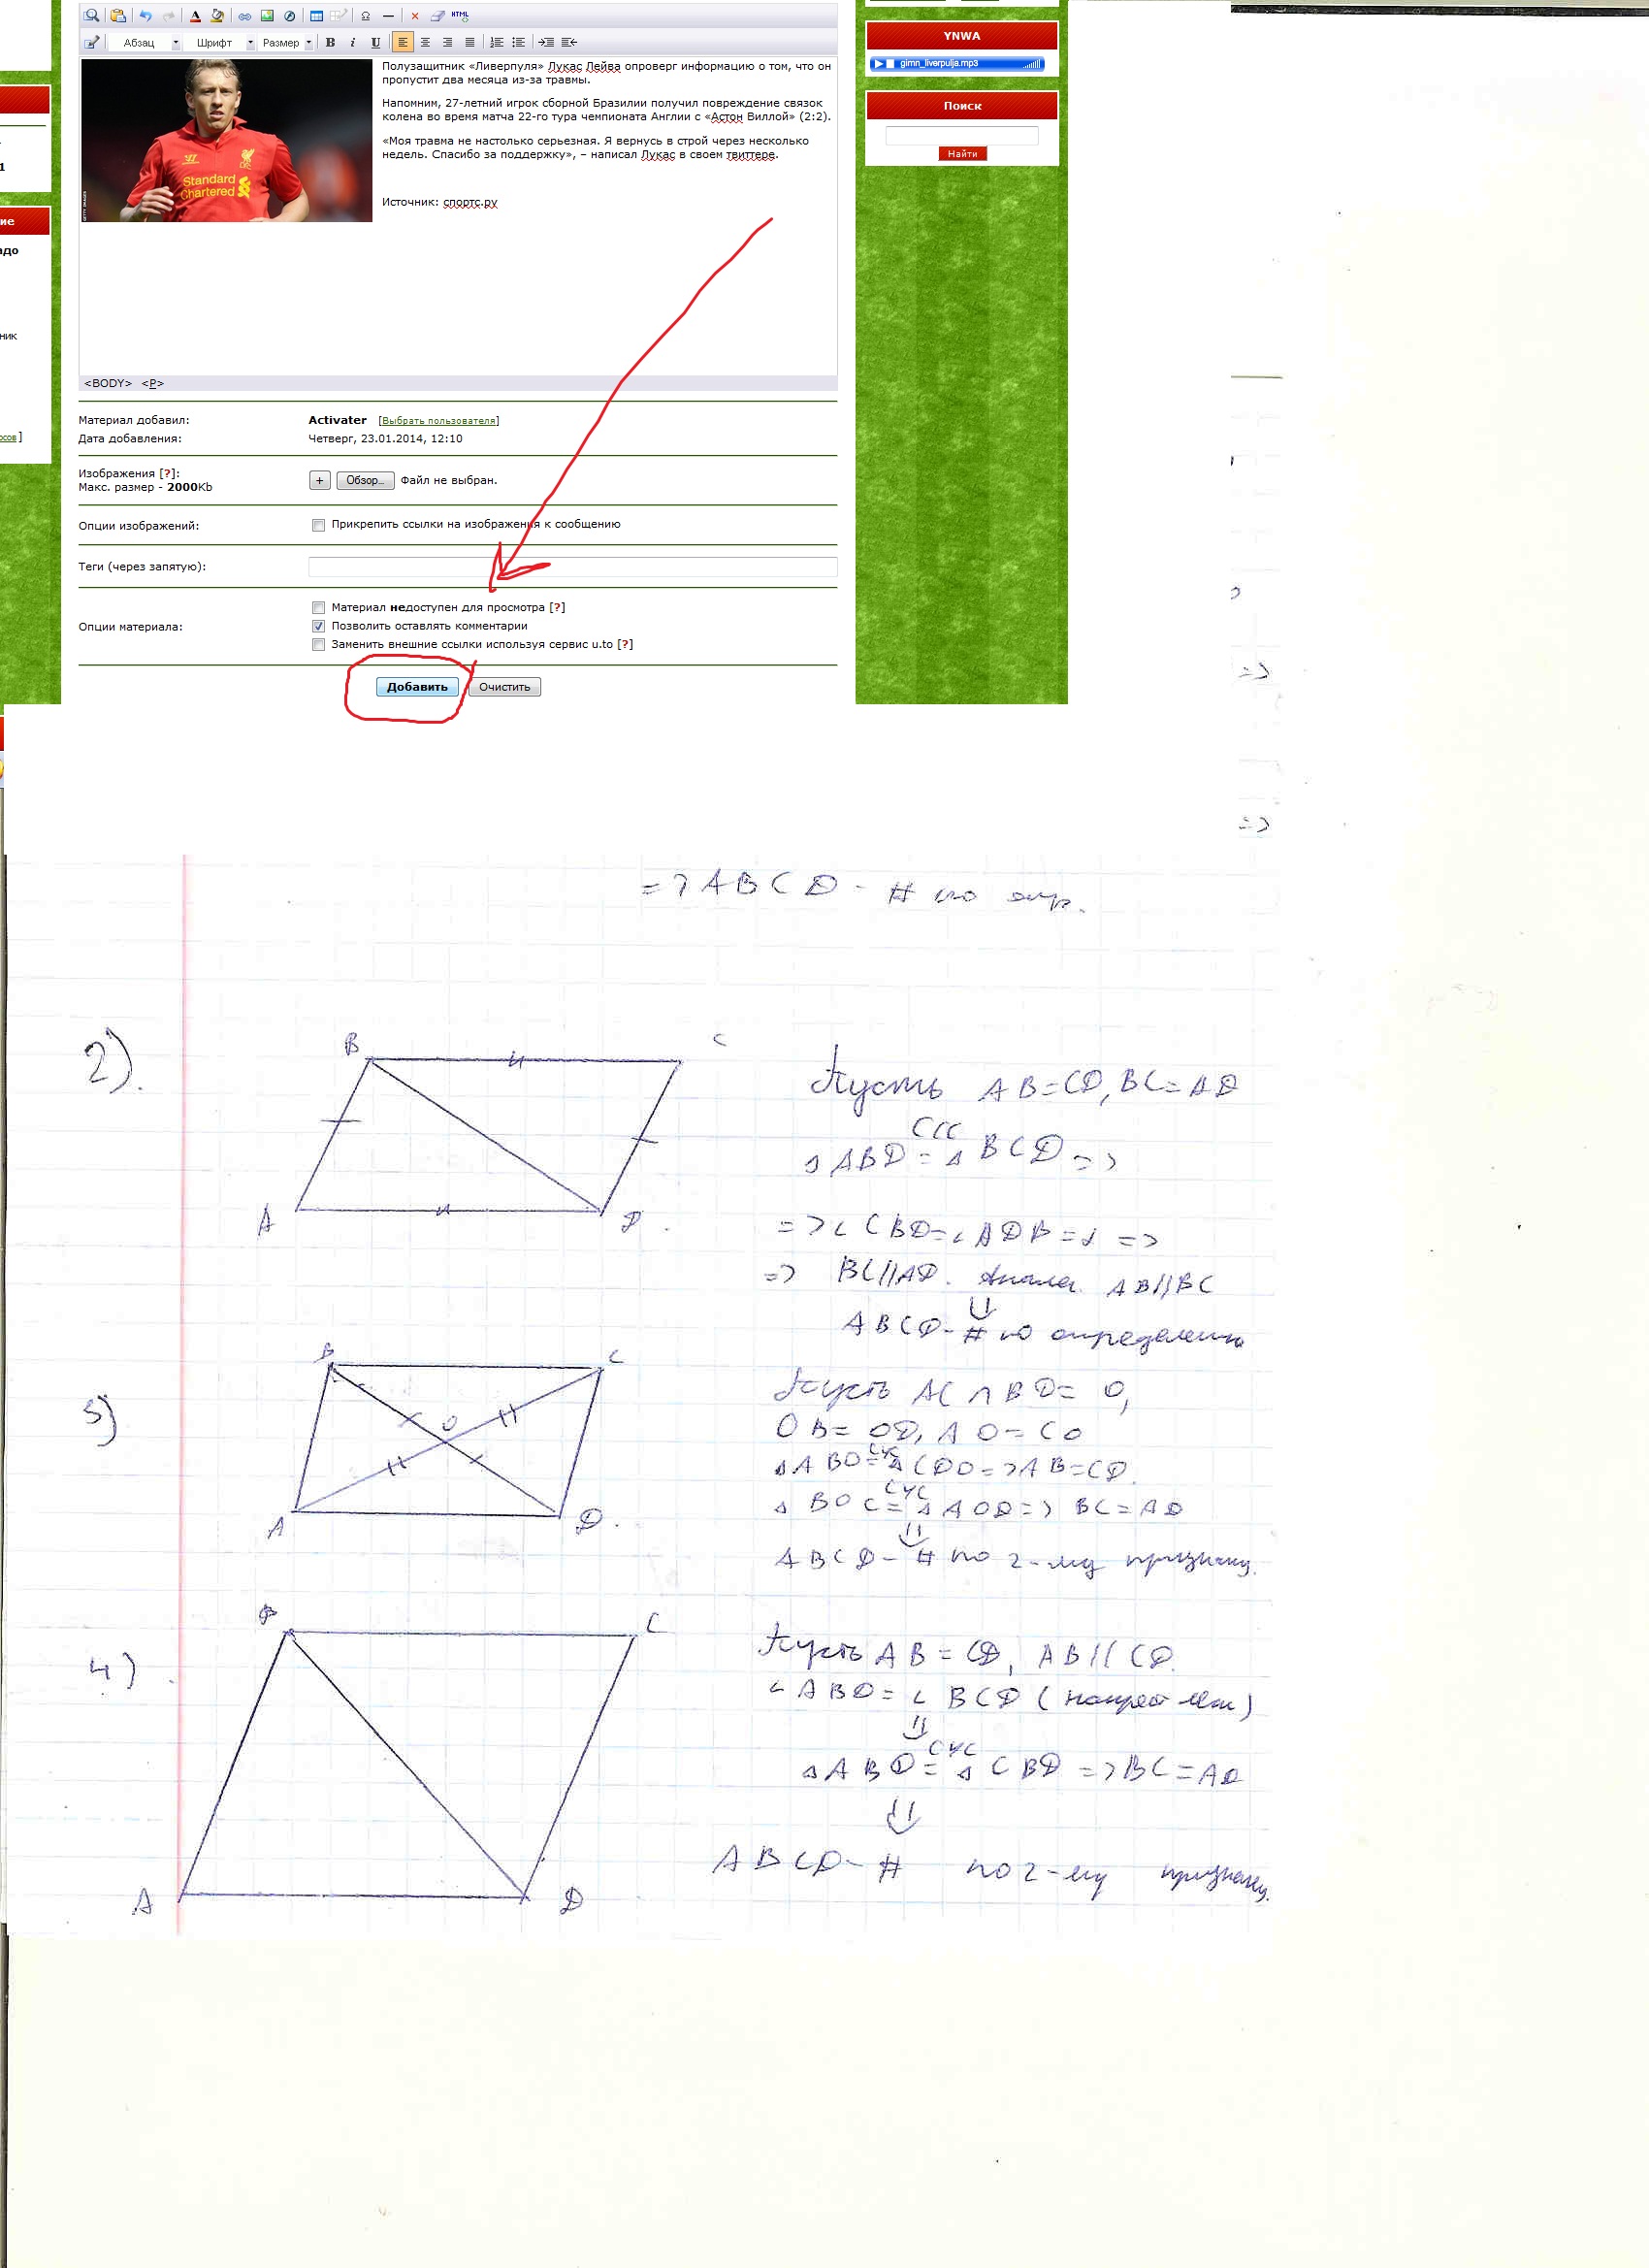 Абзац Шрифт Размер B i U HTML
Standard
Chartered
Полузащитник «Ливерпуля» Лукас Лейва опроверг информацию о том, что он
пропустит два месяца из-за травмы.
Напомним, 27-летний игрок сборной Бразилии получил повреждение связок
колена во время матча 22-го тура чемпионата Англии с «Астон Виллой» (2:2).
«Моя травма не настолько серьезная. Я вернусь в строй через несколько
недель. Спасибо за поддержку», – написал Лукас в своем твиттере.
Источник: спортс.ру
<BODY> <P>
Материал добавил: Activater [Выбрать пользователя]
Дата добавления: Четверг, 23.01.2014, 12:10
Изображения [?]:
Макс. размер - 2000Kb
+ Обзор... Файл не выбран.
Опции изображений: Прикрепить ссылки на изображения к сообщению
Теги (через запятую):
Опции материала:
Материал недоступен для просмотра [?]
Позволить оставлять комментарии
Заменить внешние ссылки используя сервис u.to [?]
Добавить Очистить
YNWA
gimn_liverpulja.mp3
Поиск
Найти
1
ие
адо
ник
осов]
=>
=>
=> ABCD - # по опр.
2).
B C
A D
Пусть AB=CD, BC=AD
ССС
△ABD=△BCD=>
=>∠CBD=∠ADB=>
=> BC//AD. Аналог. AB//BC
ABCD-# по определению
3)
B C
O
A D
Пусть AC∩BD=O,
OB=OD, AO=CO
СУС
△ABO=△CDO=>AB=CD.
СУС
△BOC=△AOD=>BC=AD
ABCD-# по 2-му признаку.
4)
B C
A D
Пусть AB=CD, AB//CD.
∠ABD=∠BCD (накрест леж)
СУС
△ABD=△CBD=>BC=AD
ABCD-# по 2-му признаку.